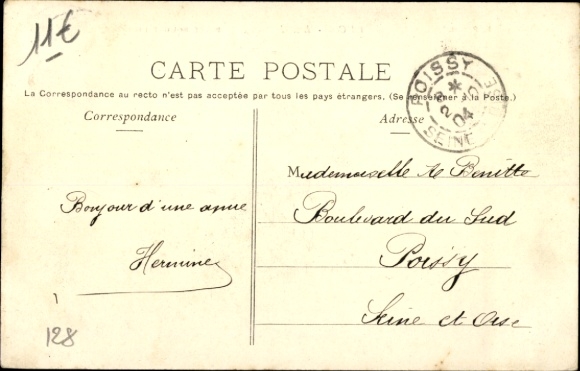 11€
CARTE POSTALE
La Correspondance au recto n'est pas acceptée par tous les pays étrangers. (Se renseigner à la Poste.)
Correspondance
Adresse
POISSY
SEINE
04
Bonjour d'une amie
Hermine
Mademoiselle A Benitte
Boulevard du Sud
Poissy
Seine et Oise
128